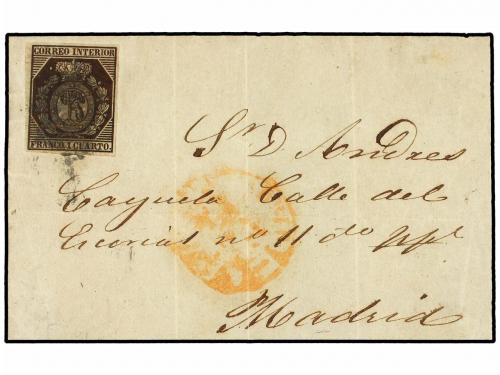 CORREO INTERIOR
FRANCO 1 CUARTO.
Sr D Andres
Cayuela Calle del
Escorial nº 11 dº
Madrid